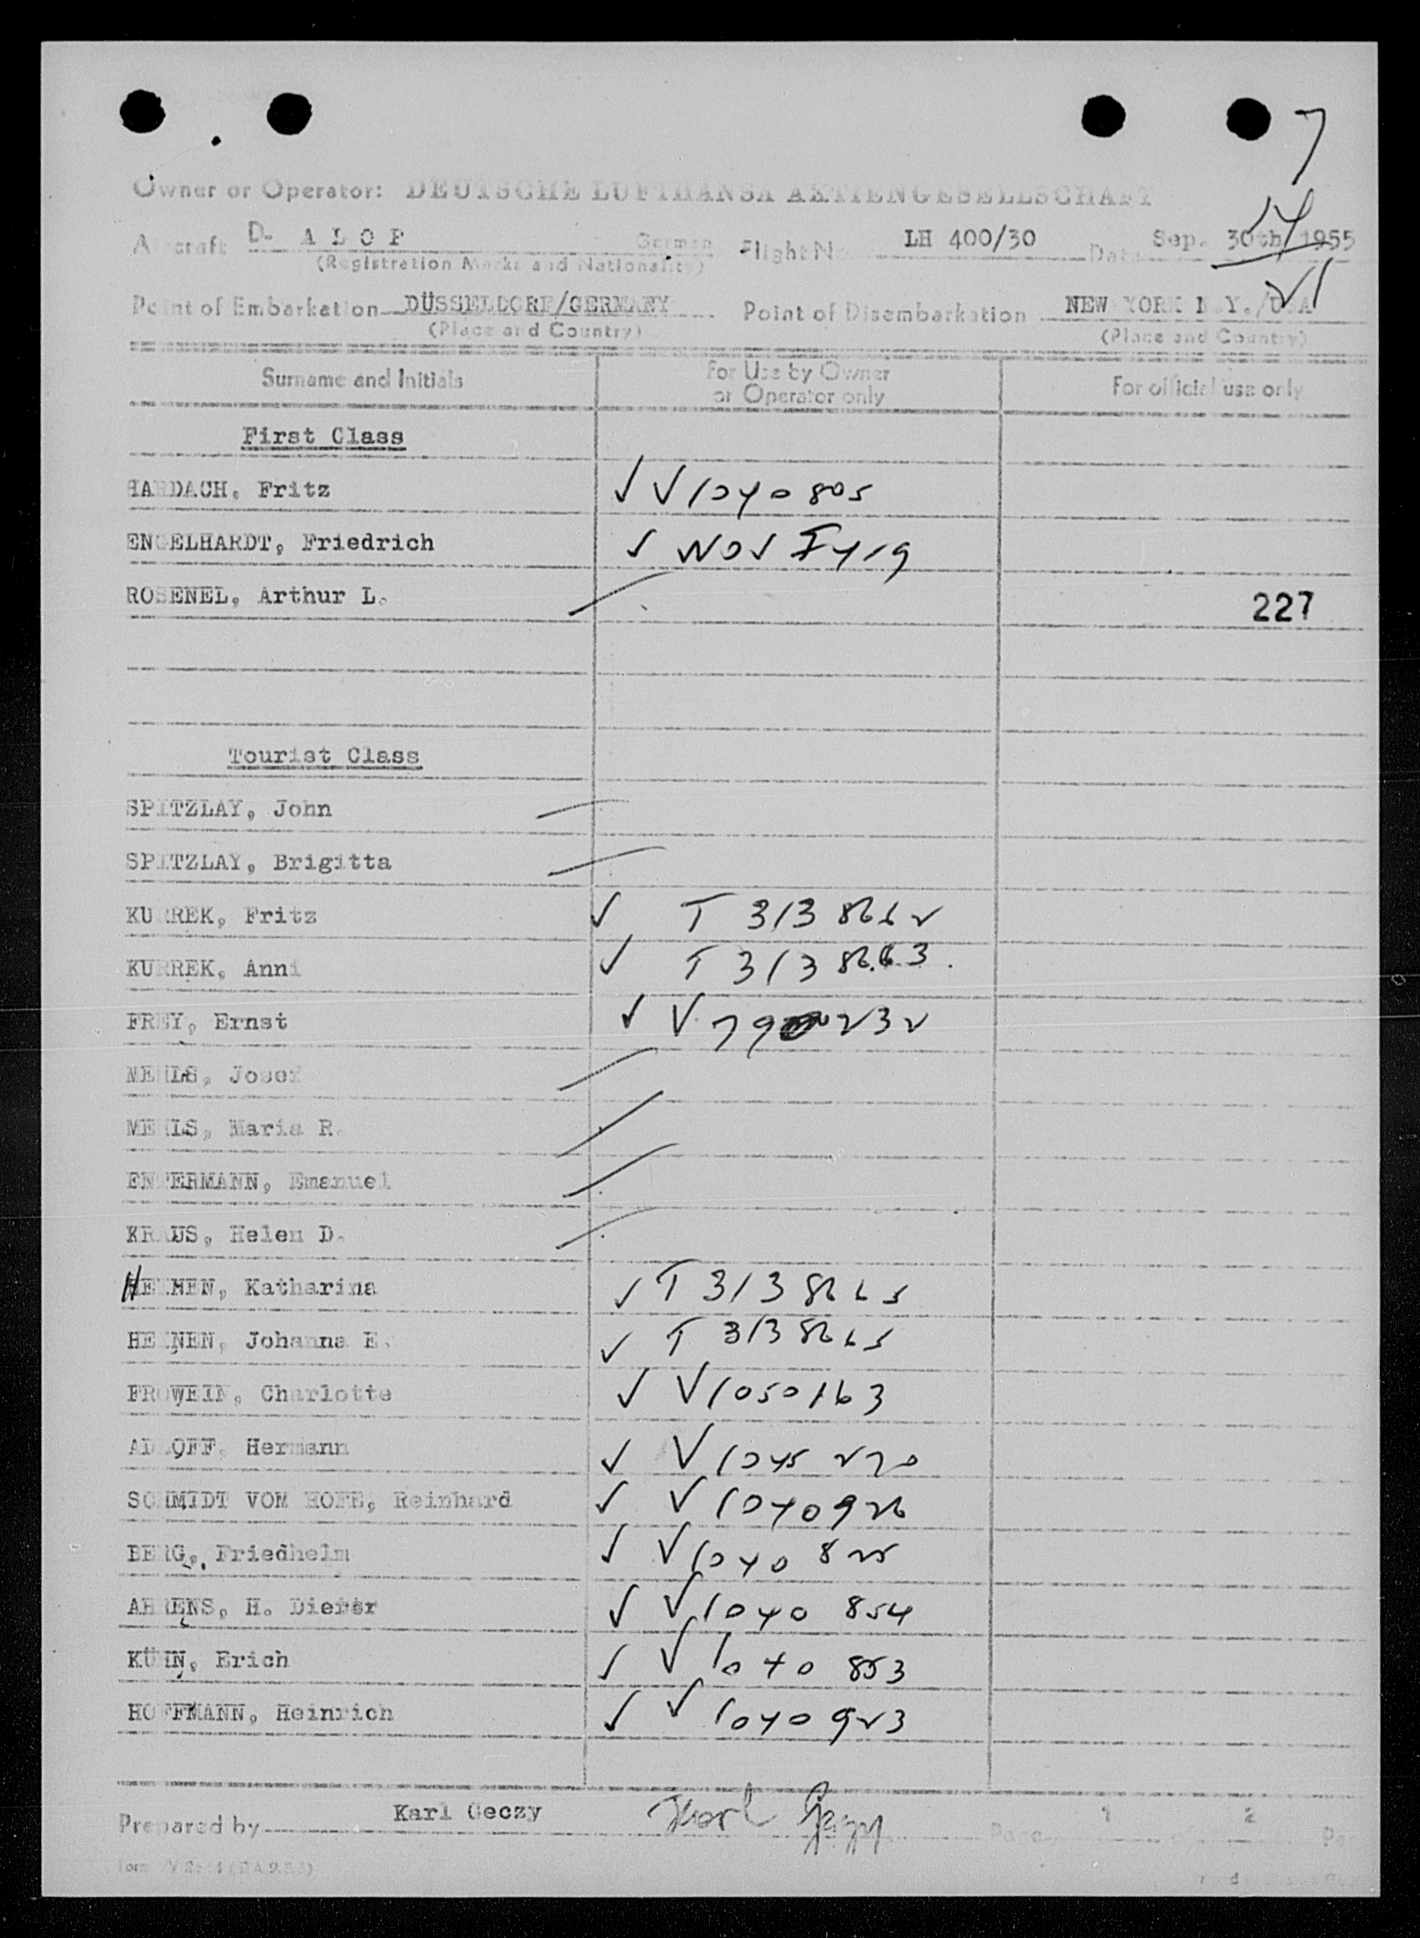 7
Owner or Operator: DEUTSCHE LUFTHANSA AKTIENGESELLSCHAFT
14
Aircraft D- A L O P German Flight No. LH 400/30 Date Sep. 30th 1955
(Registration Marks and Nationality)
Point of Embarkation DÜSSELDORF/GERMANY Point of Disembarkation NEW YORK N.Y./USA
(Place and Country) (Place and Country)
Surname and Initials For Use by Owner or Operator only For official use only
First Class
HARDACH, Fritz V 1040805
ENGELHARDT, Friedrich
ROSENEL, Arthur L. 227
Tourist Class
SPITZLAY, John
SPITZLAY, Brigitta
KURREK, Fritz T 313
KURREK, Anni T 313
FREY, Ernst V
MEHLS, Josef
MEHLS, Maria R.
ENTERMANN, Emanuel
KRAUS, Helen D.
HEINEN, Katharina T 313
HEINEN, Johanna E. T 313
FROWEIN, Charlotte V 1050163
ADLOFF, Hermann V 1045270
SCHMIDT VOM HOFE, Reinhard V 1040926
BERG, Friedhelm V 1040825
AHRENS, H. Dieter V 1040 854
KÜHN, Erich V 1040 853
HOFFMANN, Heinrich V 1040923
Prepared by Karl Geczy Karl Geczy Page 1 of 2